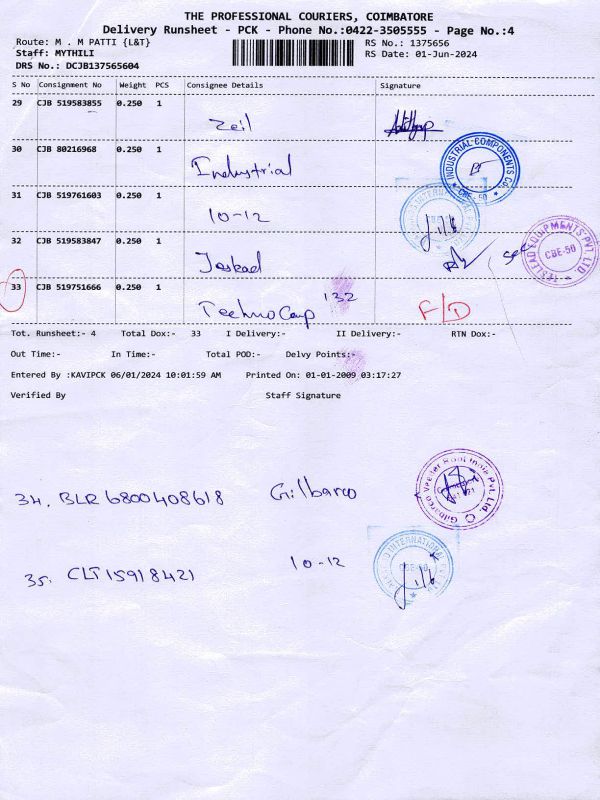 THE PROFESSIONAL COURIERS, COIMBATORE
Delivery Runsheet - PCK - Phone No.:0422-3505555 - Page No.:4
Route: M . M PATTI {L&T} RS No.: 1375656
Staff: MYTHILI RS Date: 01-Jun-2024
DRS No.: DCJB137565604
S No Consignment No Weight PCS Consignee Details Signature
29 CJB 519583855 0.250 1 Zeil
30 CJB 80216968 0.250 1 Industrial
INDUSTRIAL COMPONENTS CO. CBE-50
31 CJB 519761603 0.250 1 10-12
INTERNATIONAL
32 CJB 519583847 0.250 1
CBE-50 PVT. LTD
33 CJB 519751666 0.250 1 Techno Camp 132 F/D
Tot. Runsheet:- 4 Total Dox:- 33 I Delivery:- II Delivery:- RTN Dox:-
Out Time:- In Time:- Total POD:- Delvy Points:-
Entered By :KAVIPCK 06/01/2024 10:01:59 AM Printed On: 01-01-2009 03:17:27
Verified By Staff Signature
34. BLR 6800408618 Gilbarco
Gilbarco Veeder Root India Pvt. Ltd.
35. CLT15918421 10-12
INTERNATIONAL CBE-50